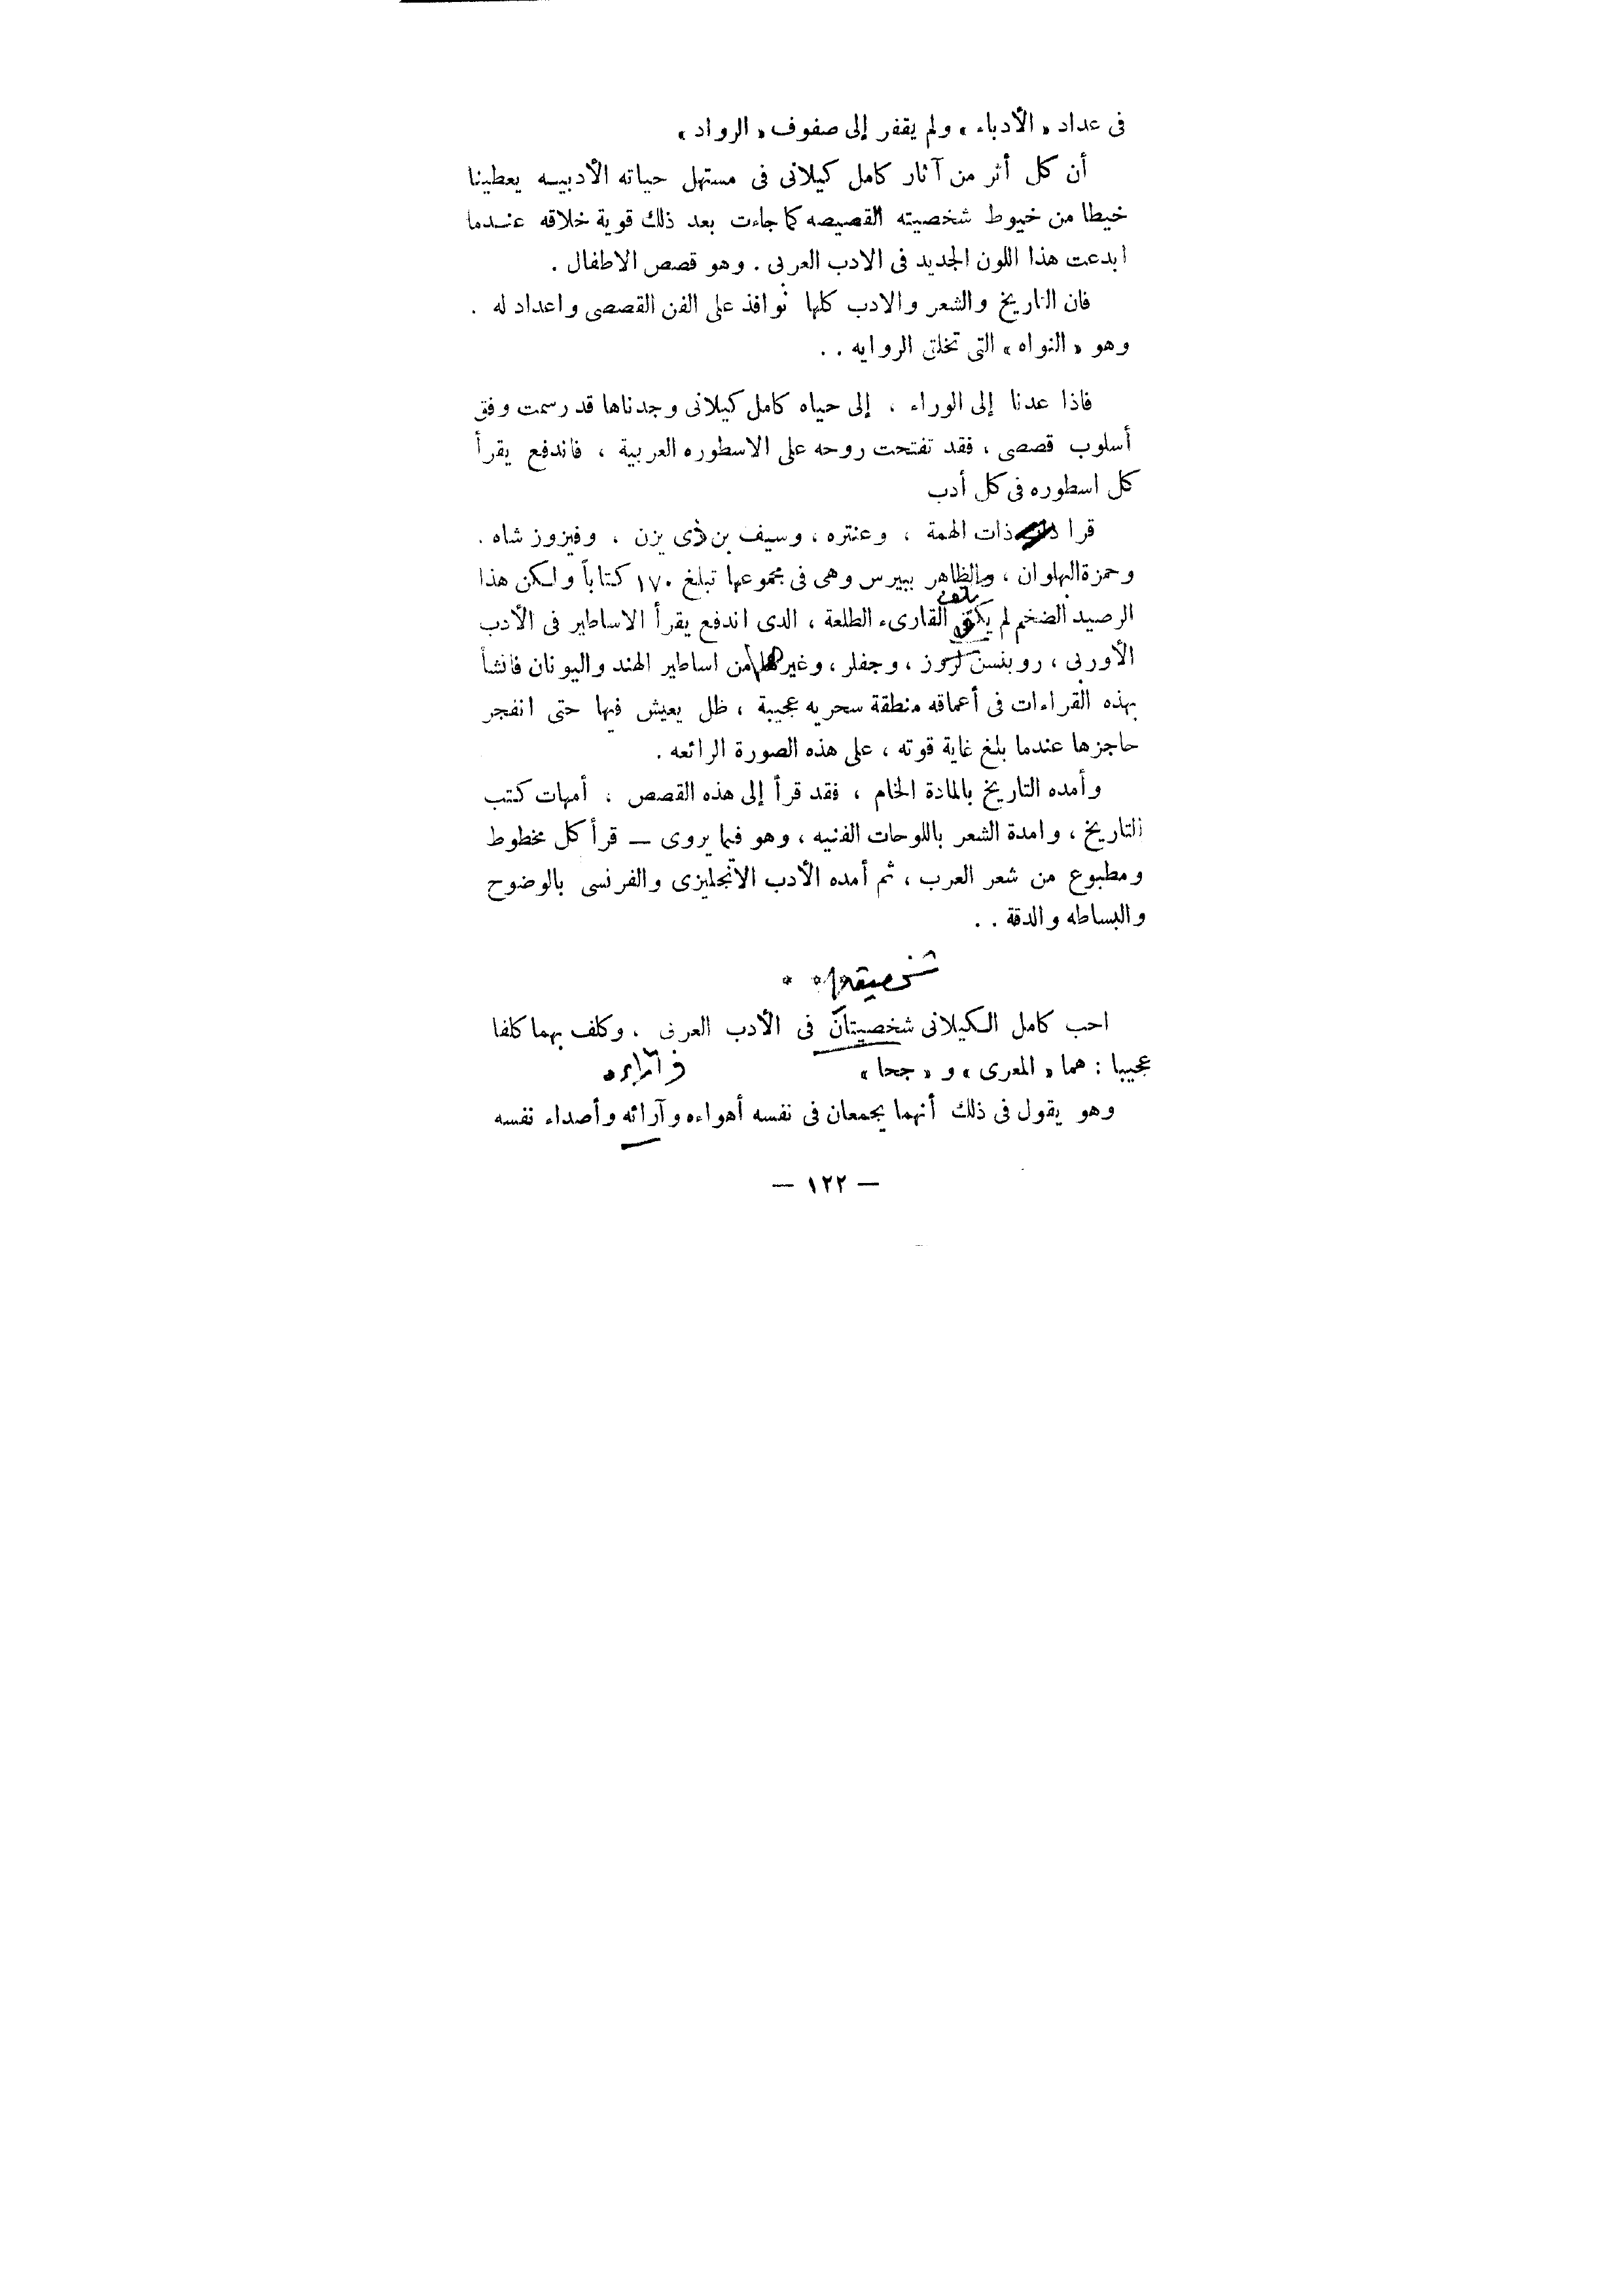 فى عداد « الأدباء » ولم يقفر إلى صفوف « الرواد »
أن كل أثر من آثار كامل كيلانى فى مستهل حياته الأدبيه يعطينا
خيطا من خيوط شخصيته القصيصه كما جاءت بعد ذلك قوية خلاقه عندما
ابدعت هذا اللون الجديد فى الادب العربى . وهو قصص الاطفال .
فان التاريخ والشعر والادب كلها نوافذ على الفن القصصى واعداد له .
وهو « النواه » التى تخلق الروايه . .
فاذا عدنا إلى الوراء ، إلى حياه كامل كيلانى وجدناها قد رسمت وفق
أسلوب قصصى ، فقد تفتحت روحه على الاسطوره العربية ، فاندفع يقرأ
كل اسطوره فى كل أدب
قرا ذات الهمة ، وعنتره ، وسيف بن ذى يزن ، وفيزوز شاه .
وحمزة البهلوان ، والظاهر ببيرس وهى فى مجموعها تبلغ ١٧٠ كتاباً ولكن هذا
الرصيد الضخم لم يكف القارىء الطلعة ، الدى اندفع يقرأ الاساطير فى الأدب
الأوربى ، روبنسن كروز ، وجفلر ، وغيرها من اساطير الهند واليونان فانشأ
بهذه القراءات فى أعماقه منطقة سحريه عجيبة ، ظل يعيش فيها حتى انفجر
حاجزها عندما بلغ غاية قوته ، على هذه الصورة الرائعه .
وأمده التاريخ بالمادة الخام ، فقد قرأ إلى هذه القصص ، أمهات كتب
التاريخ ، وامدة الشعر باللوحات الفنيه ، وهو فيما يروى — قرأ كل مخطوط
ومطبوع من شعر العرب ، ثم أمده الأدب الانجليزى والفرنسى بالوضوح
والبساطه والدقة . .
احب كامل الكيلانى شخصيتان فى الأدب العربى ، وكلف بهما كلفا
عجيبا : هما « المعرى » و « جحا »
وهو يقول فى ذلك أنهما يجمعان فى نفسه أهواءه وآرائه وأصداء نفسه
— ١٢٢ —